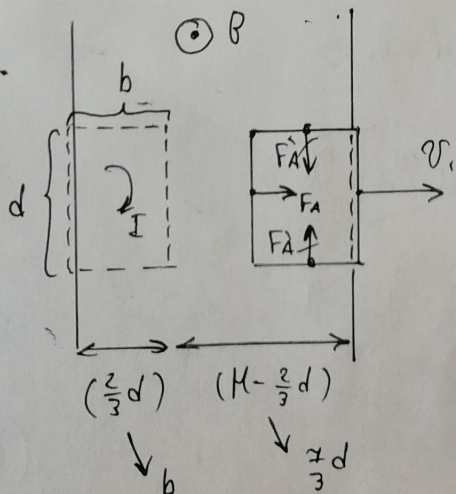 B
b
d
I
FA
FA
FA
v.
(2/3 d) (H - 2/3 d)
b
7/3 d